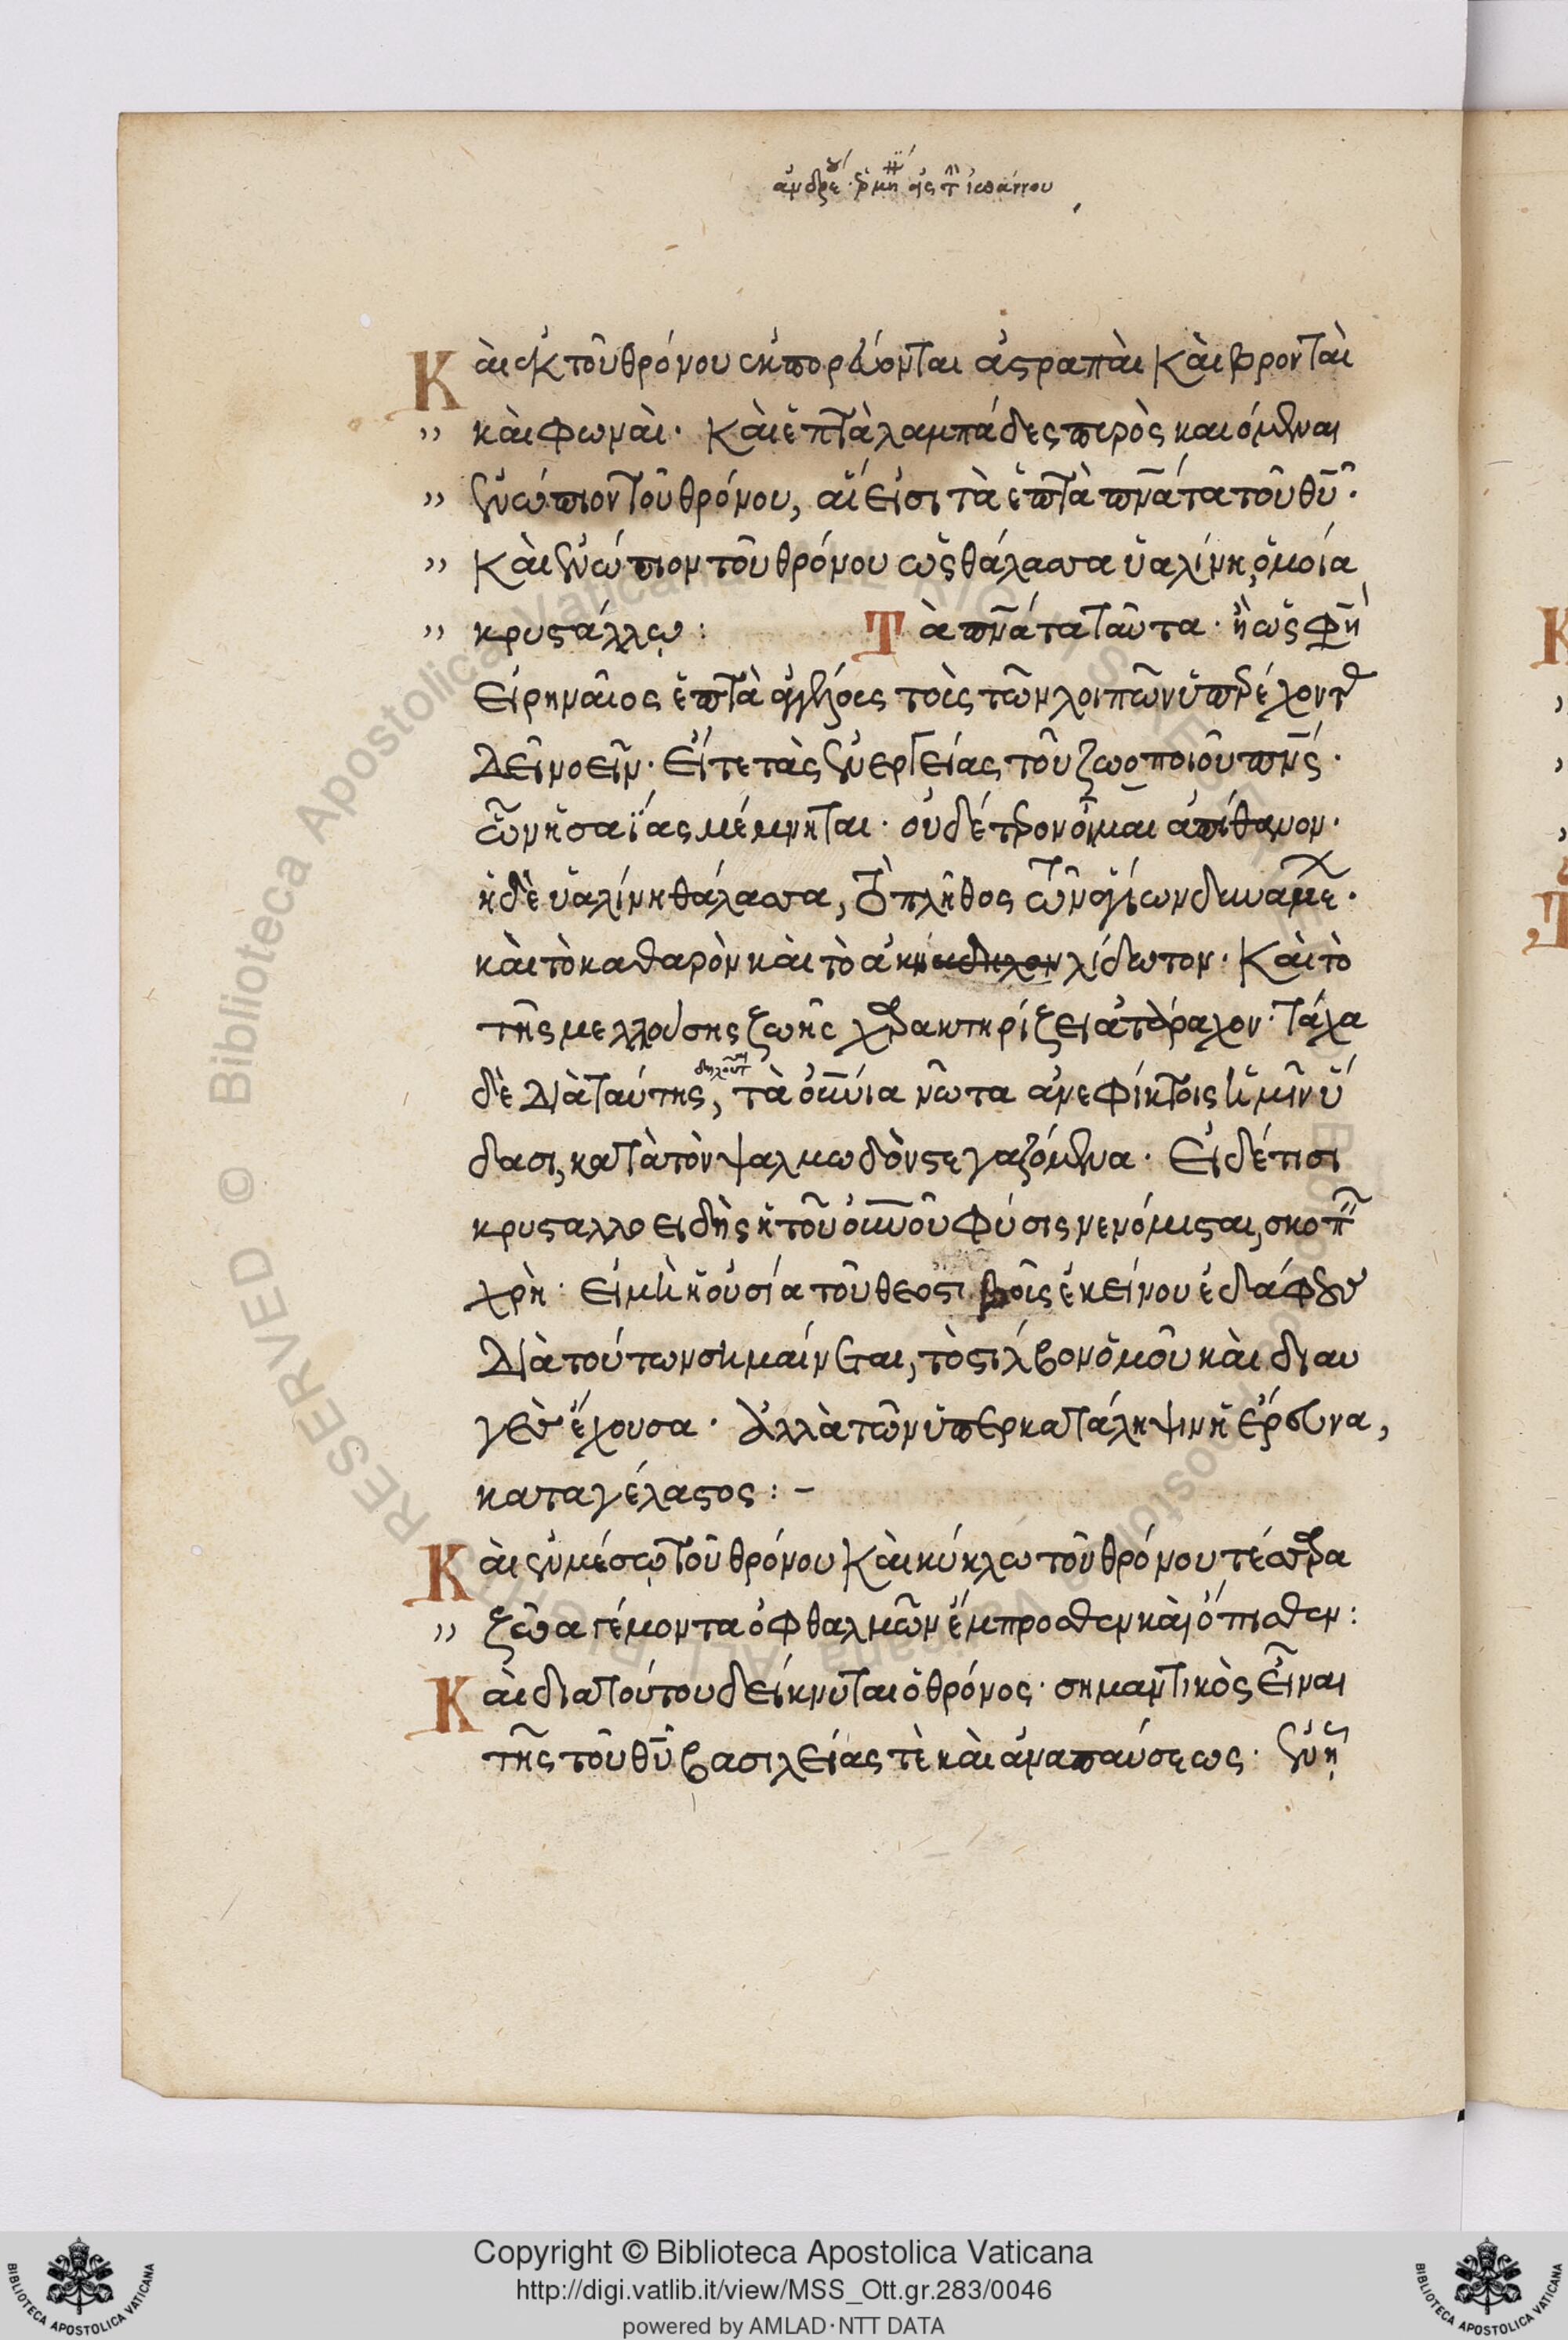 Καὶ ἐκ τοῦ θρόνου ἐκπορεύονται ἀστραπαὶ καὶ βρονταὶ
καὶ φωναὶ· καὶ ἑπτὰ λαμπάδες πυρὸς καιόμεναι
ἐνώπιον τοῦ θρόνου, αἵ εἰσι τὰ ἑπτὰ πν̅ά̅τα τοῦ θυ̅·
Καὶ ἐνώπιον τοῦ θρόνου ὡς θάλασσα ὑαλίνη, ὁμοία
κρυστάλλῳ: Τὰ πν̅ά̅τα ταῦτα· ἢ ὡς φη
Εἰρηναῖος ἑπτὰ ἀγγέλους τοὺς τῶν λοιπῶν ὑπερέχοντας
δεῖ νοεῖν· εἴτε τὰς ἐνεργείας τοῦ ζωοποιοῦ πν̅ς·
ὧν ἡσαΐας μέμνηται· οὐδέτερον οἶμαι ἀπίθανον·
ἡ δὲ ὑαλίνη θάλασσα, τὸ πλῆθος τῶν ἁγίων δυνάμε·
καὶ τὸ καθαρὸν καὶ τὸ ἀκηλίδωτον· Καὶ τὸ
τῆς μελλούσης ζωῆς χαρακτηρίζει ἀτάραχον· τάχα
δὲ διὰ ταύτης, τὰ οὐνια νῶτα ἀνεφίκτοις ἡμῖν ὕ
δασι, κατὰ τὸν ψαλμωδὸν στεγαζόμενα· Εἰ δέ τισι
κρυσταλλοειδὴς ἡ τοῦ οὐνου φύσις νενόμισται, σκοπ
χρὴ· εἰ μὴ ἡ οὐσία τοῦ θεοστιβοῦς ἐκείνου ἐδάφους
διὰ τούτων σημαίνεται, τὸ στίλβον ὁμοῦ καὶ διαυ
γὲς ἔχουσα· Ἀλλὰ τῶν ὑπὲρ κατάληψιν ἡ ἔρευνα,
καταγέλαστος:–
Καὶ ἐν μέσῳ τοῦ θρόνου καὶ κύκλω τοῦ θρόνου τέσσαρα
ζῶα γέμοντα ὀφθαλμῶν ἔμπροσθεν καὶ ὄπισθεν:
Καὶ διὰ τούτου δείκνυται ὁ θρόνος· σημαντικὸς εἶναι
τῆς τοῦ θυ̅ βασιλείας τὲ καὶ ἀναπαύσεως· ἐν ᾗ
Copyright © Biblioteca Apostolica Vaticana
http://digi.vatlib.it/view/MSS_Ott.gr.283/0046
powered by AMLAD·NTT DATA